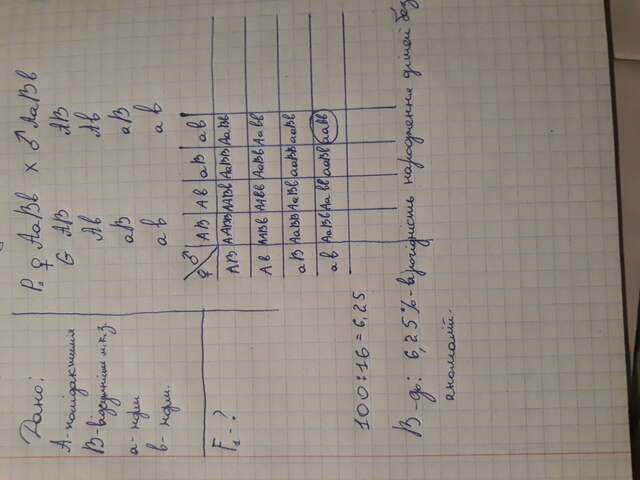 Дано:
А-полідактилія
В-відсутність м.к.з.
а- норм
в- норм.
F₁-?
P₁ ♀ АаВв х ♂ АаВв
G АВ АВ
Ав Ав
аВ аВ
ав ав
♀ ♂ АВ Ав аВ ав
АВ ААВВ ААВв АаВВ АаВв
Ав ААВв ААвв АаВв Аавв
аВ АаВВ АаВв ааВВ ааВв
ав АаВв Аавв ааВв аавв
100:16=6,25
В-дь: 6,25%-вірогідність народження дітей без
аномалій.